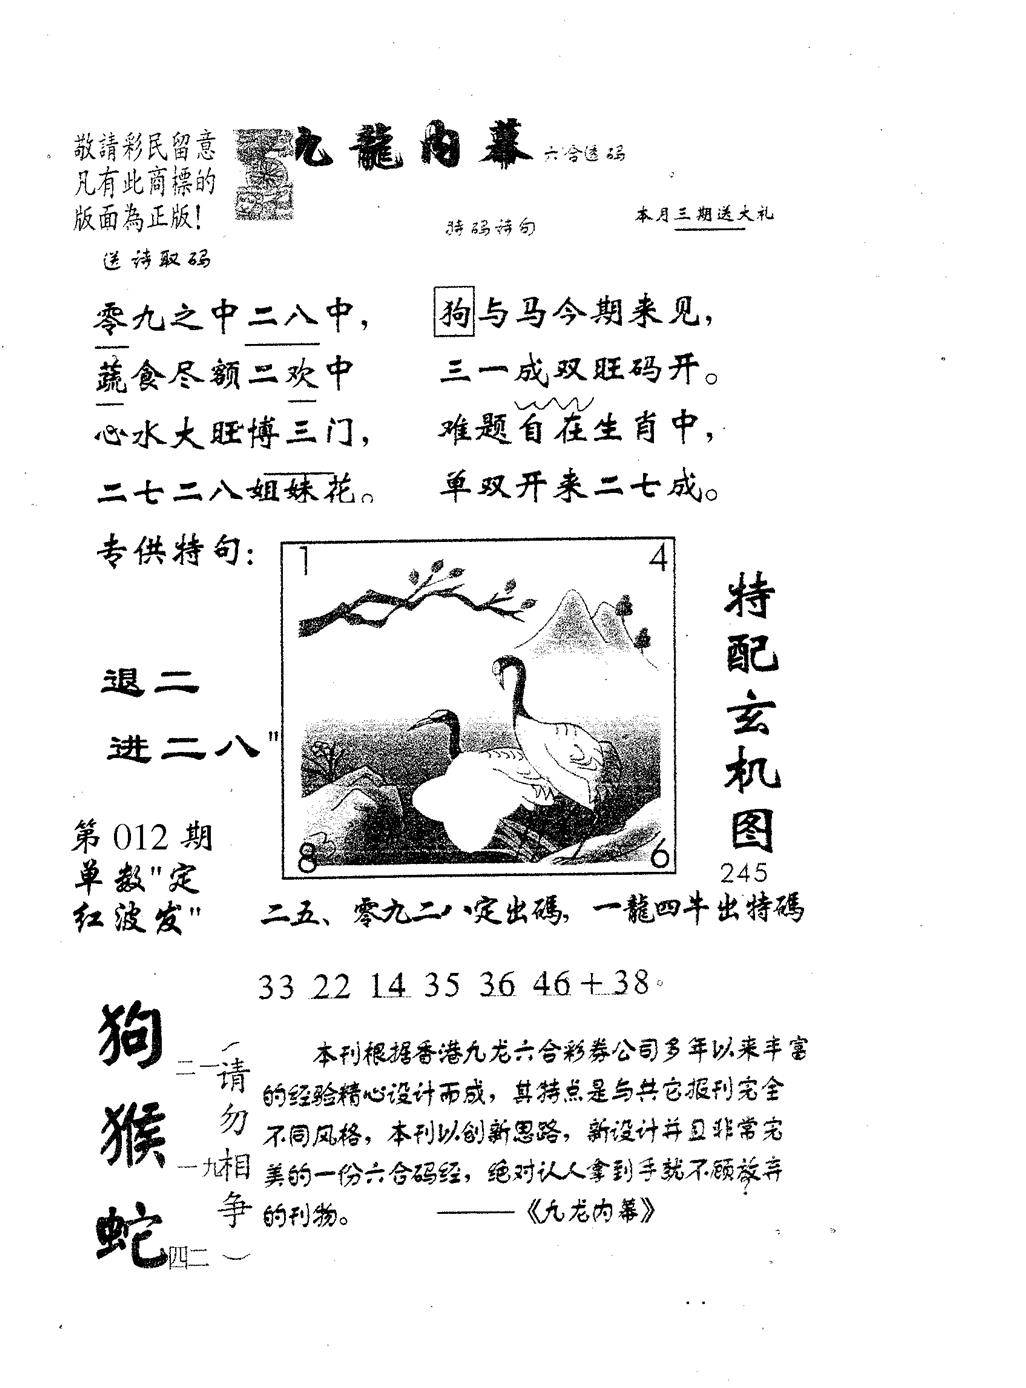 敬請彩民留意
凡有此商標的
版面為正版!
九龍内幕 六合透码
特码诗句
本月三期送大礼
送诗取码
零九之中二八中，
蔬食尽额二欢中
心水大旺博三门，
二七二八姐妹花。
狗与马今期来见，
三一成双旺码开。
难题自在生肖中，
单双开来二七成。
专供特句：
退二
进二八"
1
4
8
6
特配玄机图
245
第012期
单数"定
红波发"
二五、零九二八定出碼，一龍四牛出特碼
33 22 14 35 36 46+38。
狗二一
猴一九
蛇四二
（请勿相争）
本刊根据香港九龙六合彩券公司多年以来丰富
的经验精心设计而成，其特点是与其它报刊完全
不同风格，本刊以创新思路，新设计并且非常完
美的一份六合码经，绝对让人拿到手就不顾放弃
的刊物。 ——《九龙内幕》